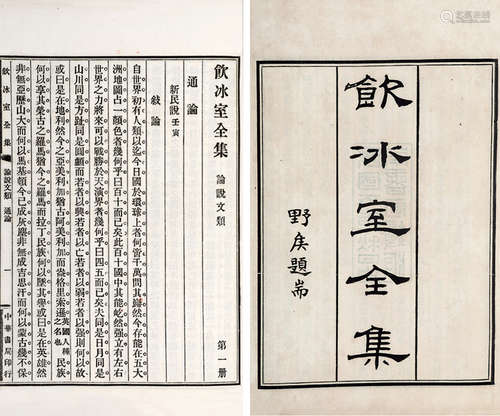 飲冰室全集
野侯題耑
飲冰室全集 論說文類 第一册
通論
新民說 壬寅
敍論
自世界初有人類以迄今日國於環球上者何啻千萬問其巋然今存能在五大
洲地圖占一顏色者幾何乎曰百十而已矣此百十國中其能屹然强立有左右
世界之力將來可以戰勝於天演界者幾何乎曰四五而已矣夫同是日月同是
山川同是方趾同是圓顱而若者以興若者以亡若者以弱若者以强則何以故
或曰是在地利然今之亞美利加猶古阿美利加而盎格里索遜英國人種之名也民族
何以享其榮古之羅馬猶今之羅馬而拉丁民族何以墜其譽或曰是在英雄然
非無亞歷山大而何以馬基頓今已成灰塵非無成吉思汗而何以蒙古幾不保
飲冰室全集 論說文類 通論 一 中華書局印行